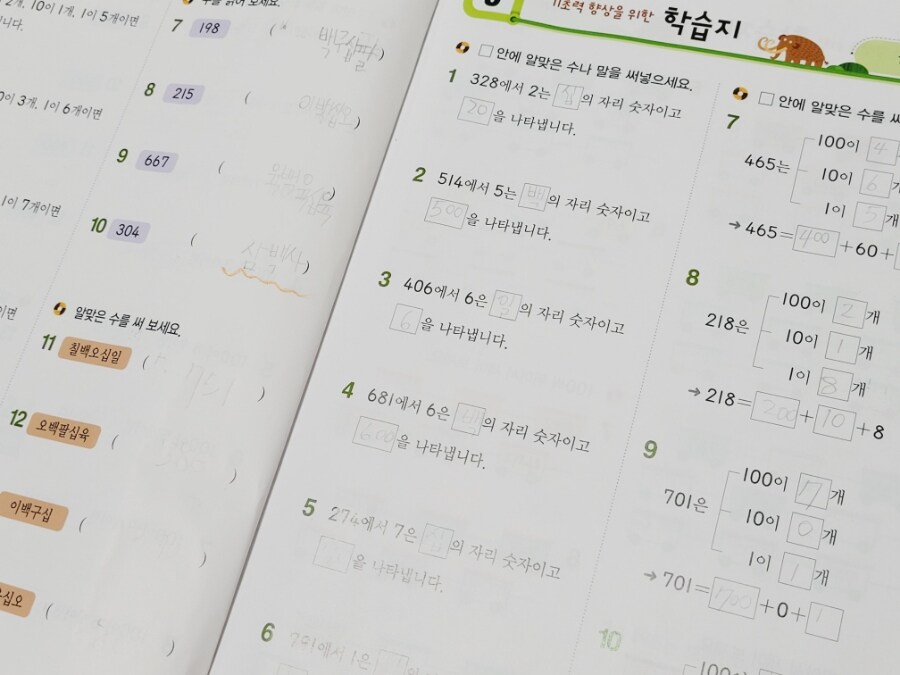 2개, 10이 1개, 1이 5개이면
니다.
0이 3개, 1이 6개이면
1이 7개이면
이면
수를 읽어 보세요.
7 198 ( 백구십팔 )
8 215 ( 이백십오 )
9 667 ( )
10 304 ( 삼백사 )
알맞은 수를 써 보세요.
11 칠백오십일 ( 751 )
12 오백팔십육 ( )
이백구십 ( )
십오 ( )
기초력 향상을 위한 학습지
□ 안에 알맞은 수나 말을 써넣으세요.
1 328에서 2는 십의 자리 숫자이고
20을 나타냅니다.
2 514에서 5는 백의 자리 숫자이고
500을 나타냅니다.
3 406에서 6은 일의 자리 숫자이고
6을 나타냅니다.
4 681에서 6은 백의 자리 숫자이고
600을 나타냅니다.
5 274에서 7은 십의 자리 숫자이고
을 나타냅니다.
6 791에서 1은 의 자리 숫자이고
을 나타냅니다.
□ 안에 알맞은 수를 써
7
465는
100이 4
10이 6 개
1이 5 개
→ 465=400+60+
8
218은
100이 2 개
10이 1 개
1이 8 개
→ 218=200+10+8
9
701은
100이 7 개
10이 0 개
1이 1 개
→ 701=700+0+1
10
100이